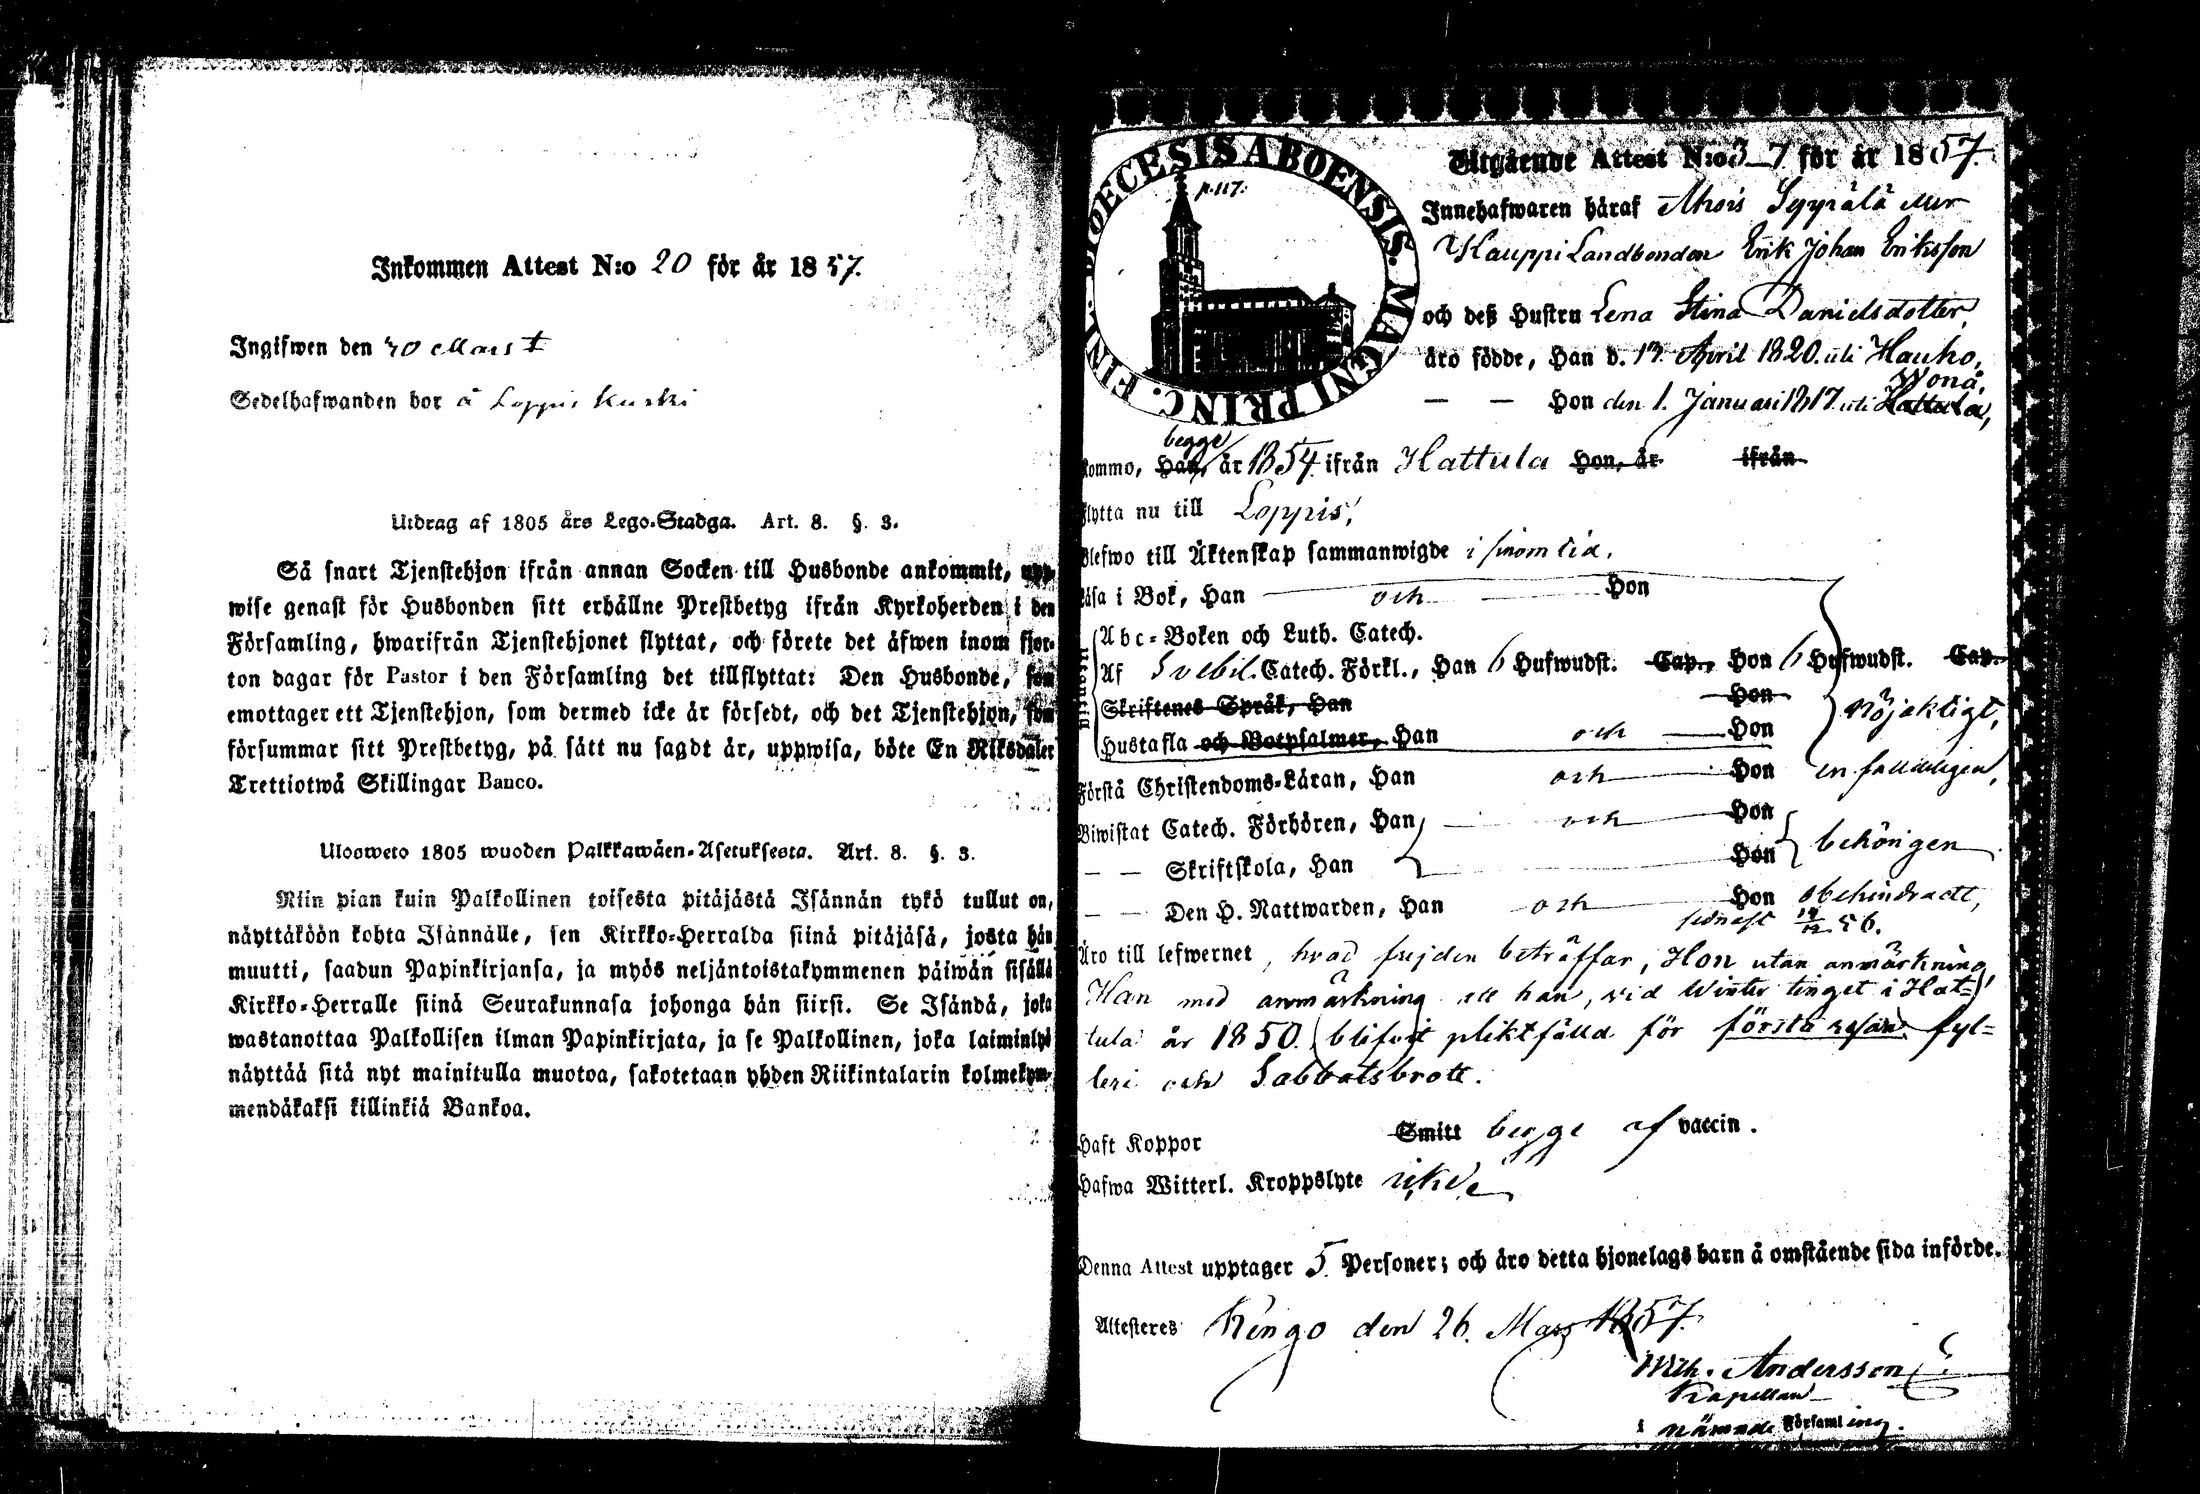 Inkommen Attest N:o 20 för år 1857.
Ingifwen den 30 Mars
Sedelhafwanden bor å Loppis Kurki
Utdrag af 1805 års Lego-Stadga. Art. 8. §. 3.
Så snart Tjenstehjon ifrån annan Socken till Husbonde ankommit, upp-
wise genast för Husbonden sitt erhållne Prestbetyg ifrån Kyrkoherden i den
Församling, hwarifrån Tjenstehjonet flyttat, och förete det äfwen inom fjor-
ton dagar för Pastor i den Församling det tillflyttat: Den Husbonde, som
emottager ett Tjenstehjon, som dermed icke är försedt, och det Tjenstehjon, som
försummar sitt Prestbetyg, på sätt nu sagdt är, uppwisa, böte En Riksdaler
Trettiotwå Skillingar Banco.
Ulosweto 1805 wuoden Palkkawäen-Asetuksesta. Art. 8. §. 3.
Niin pian kuin Palkollinen toisesta pitäjästä Isännän tykö tullut on,
näyttäköön kohta Isännälle, sen Kirkko-Herralda siinä pitäjäsä, josta hän
muutti, saadun Papinkirjansa, ja myös neljäntoistakymmenen päiwän sisällä
Kirkko-Herralle siinä Seurakunnasa johonga hän siirsi. Se Isändä, joka
wastanottaa Palkollisen ilman Papinkirjata, ja se Palkollinen, joka laiminlyö
näyttää sitä nyt mainitulla muotoa, sakotetaan yhden Riikintalarin kolmekym-
mendäkaksi killinkiä Bankoa.
FINL. DIOECESIS ABOENSIS. MAGNI PRINC.
p.117:
Utgående Attest N:o 37 för år 1857.
Innehafwaren häraf Ahois Syprälä eller
Kauppi Landbonden Erik Johan Eriksson
och deß Hustru Lena Stina Danielsdotter,
äro födde, Han d. 13. April 1820. uti Hauho,
Wonå,
— — Hon den 1. Januari 1817. uti Hattula,
begge
kommo, Han, år 1854. ifrån Hattula Hon, år ifrån
flytta nu till Loppis,
Blefwo till Äktenskap sammanwigde i sinom tid.
Läsa i Bok, Han och Hon
Utantill
Abc-Boken och Luth. Catech.
Af Svebil. Catech. Förkl., Han 6 Hufwudst. Cap., Hon 6 Hufwudst. Cap.
Skriftenes Språk, Han Hon
nöjaktigt,
Hustafla och Botpsalmer, Han och Hon
Förstå Christendoms-Läran, Han och Hon enfaldeligen,
Biwistat Catech. Förhören, Han och Hon
behörigen
— — Skriftskola, Han Hon
— — Den H. Nattwarden, Han och Hon obehindradt,
sednast 14/12 56.
Äro till lefwernet, hvad frejden beträffar, Hon utan anmärkning,
Han med anmärkning att han, vid Winter tinget i Hat=
tula år 1850. blifvit pliktfälld för första resan fyl=
leri och Sabbatsbrott.
Haft Koppor Smitt begge af vaccin.
Hafwa Witterl. Kroppslyte icke
Denna Attest upptager 5. Personer; och äro detta hjonelags barn å omstående sida införde.
Attesteres Rengo den 26. Mars 1857.
Wilh. Andersson
Kapellan
i nämnde Församling.